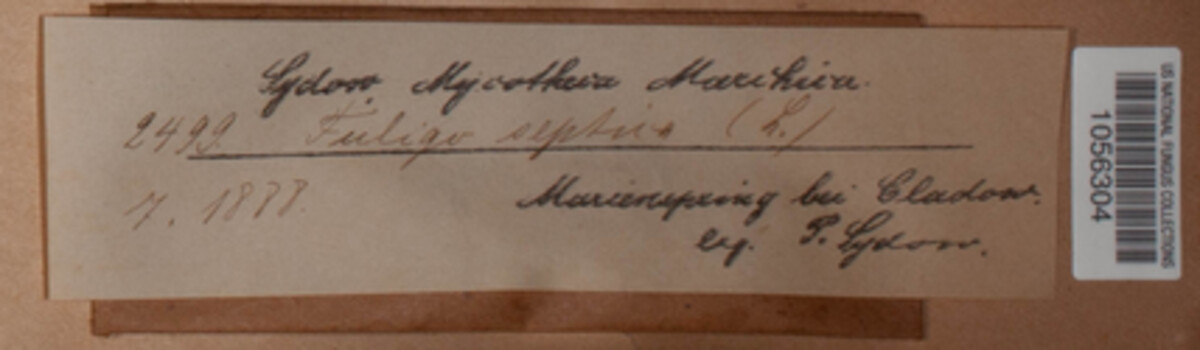 Sydow, Mycotheca Marchica.
2499. Fuligo septica (L.)
7. 1888.
Marienspring bei Cladow.
leg. P. Sydow.
US NATIONAL FUNGUS COLLECTIONS
1056304